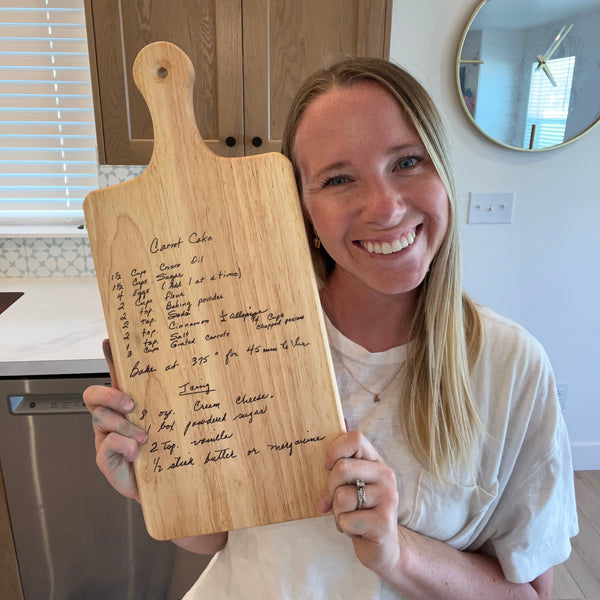 Carrot Cake
1½ Cups Cooco Oil
1½ Cups Sugar
4 Eggs (Add 1 at a time)
2 Cups flour
2 tsp. Baking powder
2 tsp. Soda
2 tsp. Cinnamon ½ Allspice
1 tsp. Salt ¾ Cups
3 Cups Grated carrots chopped pecans
Bake at 375° for 45 min to 1 hr.
Icing
8 oz. Cream Cheese.
1 box powdered sugar
2 tsp. vanilla
½ stick butter or margarine